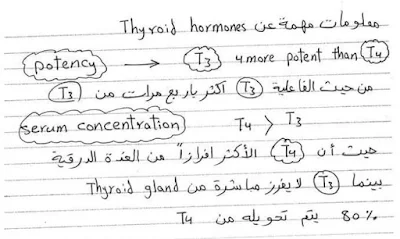 معلومات مهمة عن Thyroid hormones
potency → T3 4 more potent than T4
من حيث الفاعلية T3 اكثر باربع مرات من T3
serum concentration T4 > T3
حيث أن T4 الأكثر افرازاً من الغدة الدرقية
بينما T3 لا يفرز مباشرة من Thyroid gland
80% يتم تحويله من T4